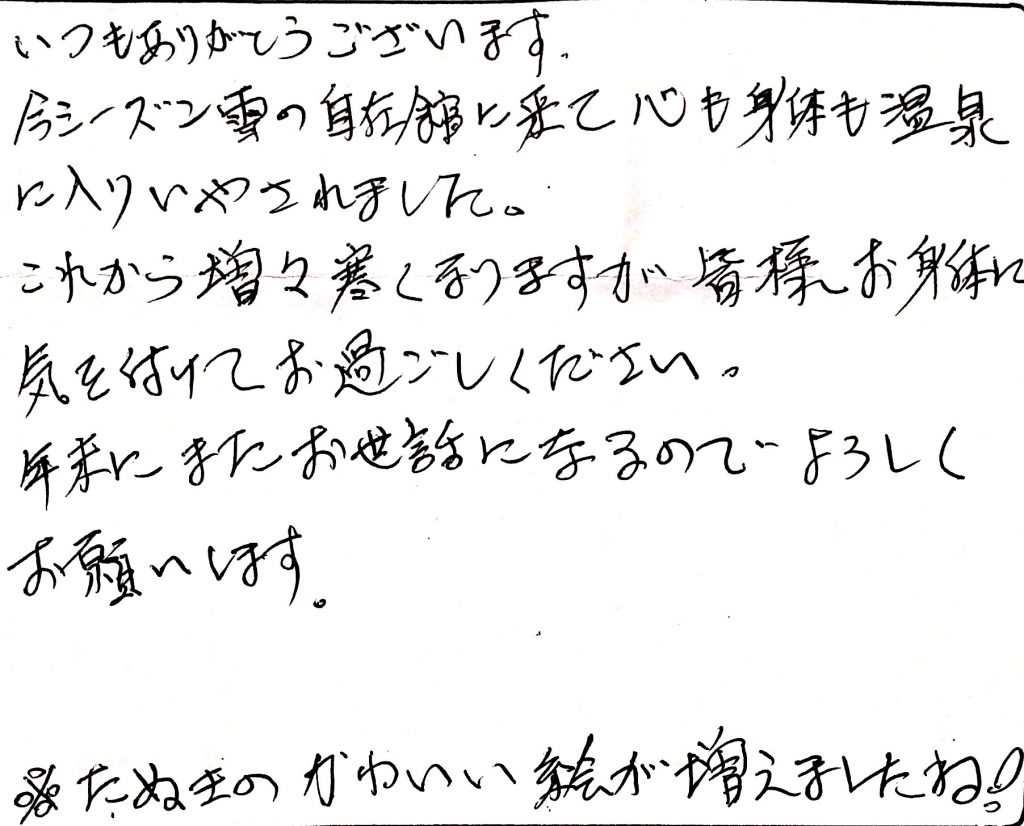 いつもありがとうございます.
今シーズン雪の自在館に来て心も身体も温泉
に入りいやされました。
これから増々寒くなりますが皆様お身体に
気を付けてお過ごしください。
年末にまたお世話になるのでよろしく
お願いします。
※たぬきのかわいい絵が増えましたね!!